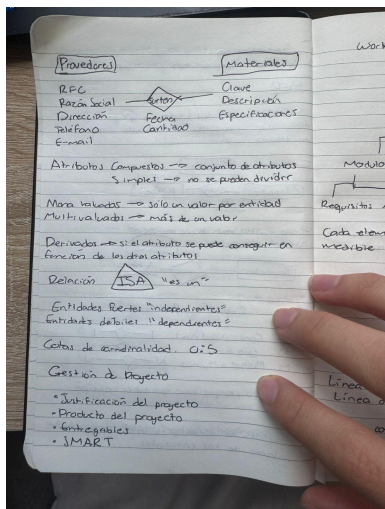 Provedores
Materiales
RFC
Razón Social
Dirección
Teléfono
E-mail
Surten
Fecha
Cantidad
Clave
Descripción
Especificaciones
Atributos Compuestos → conjunto de atributos
Simples → no se pueden dividir
Mono valuados → solo un valor por entidad
Multivaluados → más de un valor
Derivados → si el atributo se puede conseguir en
función de los otros atributos
Relación ISA "es un"
Entidades fuertes "independientes"
Entidades débiles "dependientes"
Cotas de cardinalidad. 0:5
Gestión de Proyecto
• Justificación del proyecto
• Producto del proyecto
• Entregables
• SMART
Work
Modulo
Requisitos
Cada elem
medible
Línea
Línea